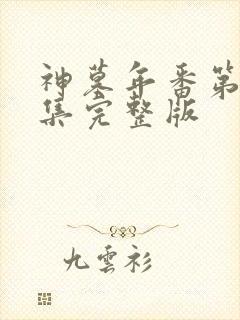 神墓年番第
集完整版
九雲衫